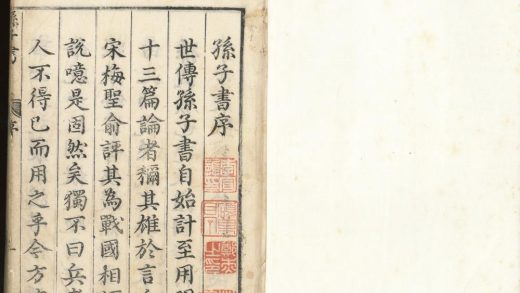 孫子書序
世傳孫子書自始計至用
十三篇論者穪其雄於言
宋梅聖俞評其為戰國相
說噫是固然矣獨不曰兵
人不得已而用之乎今方
孫子書 序 一